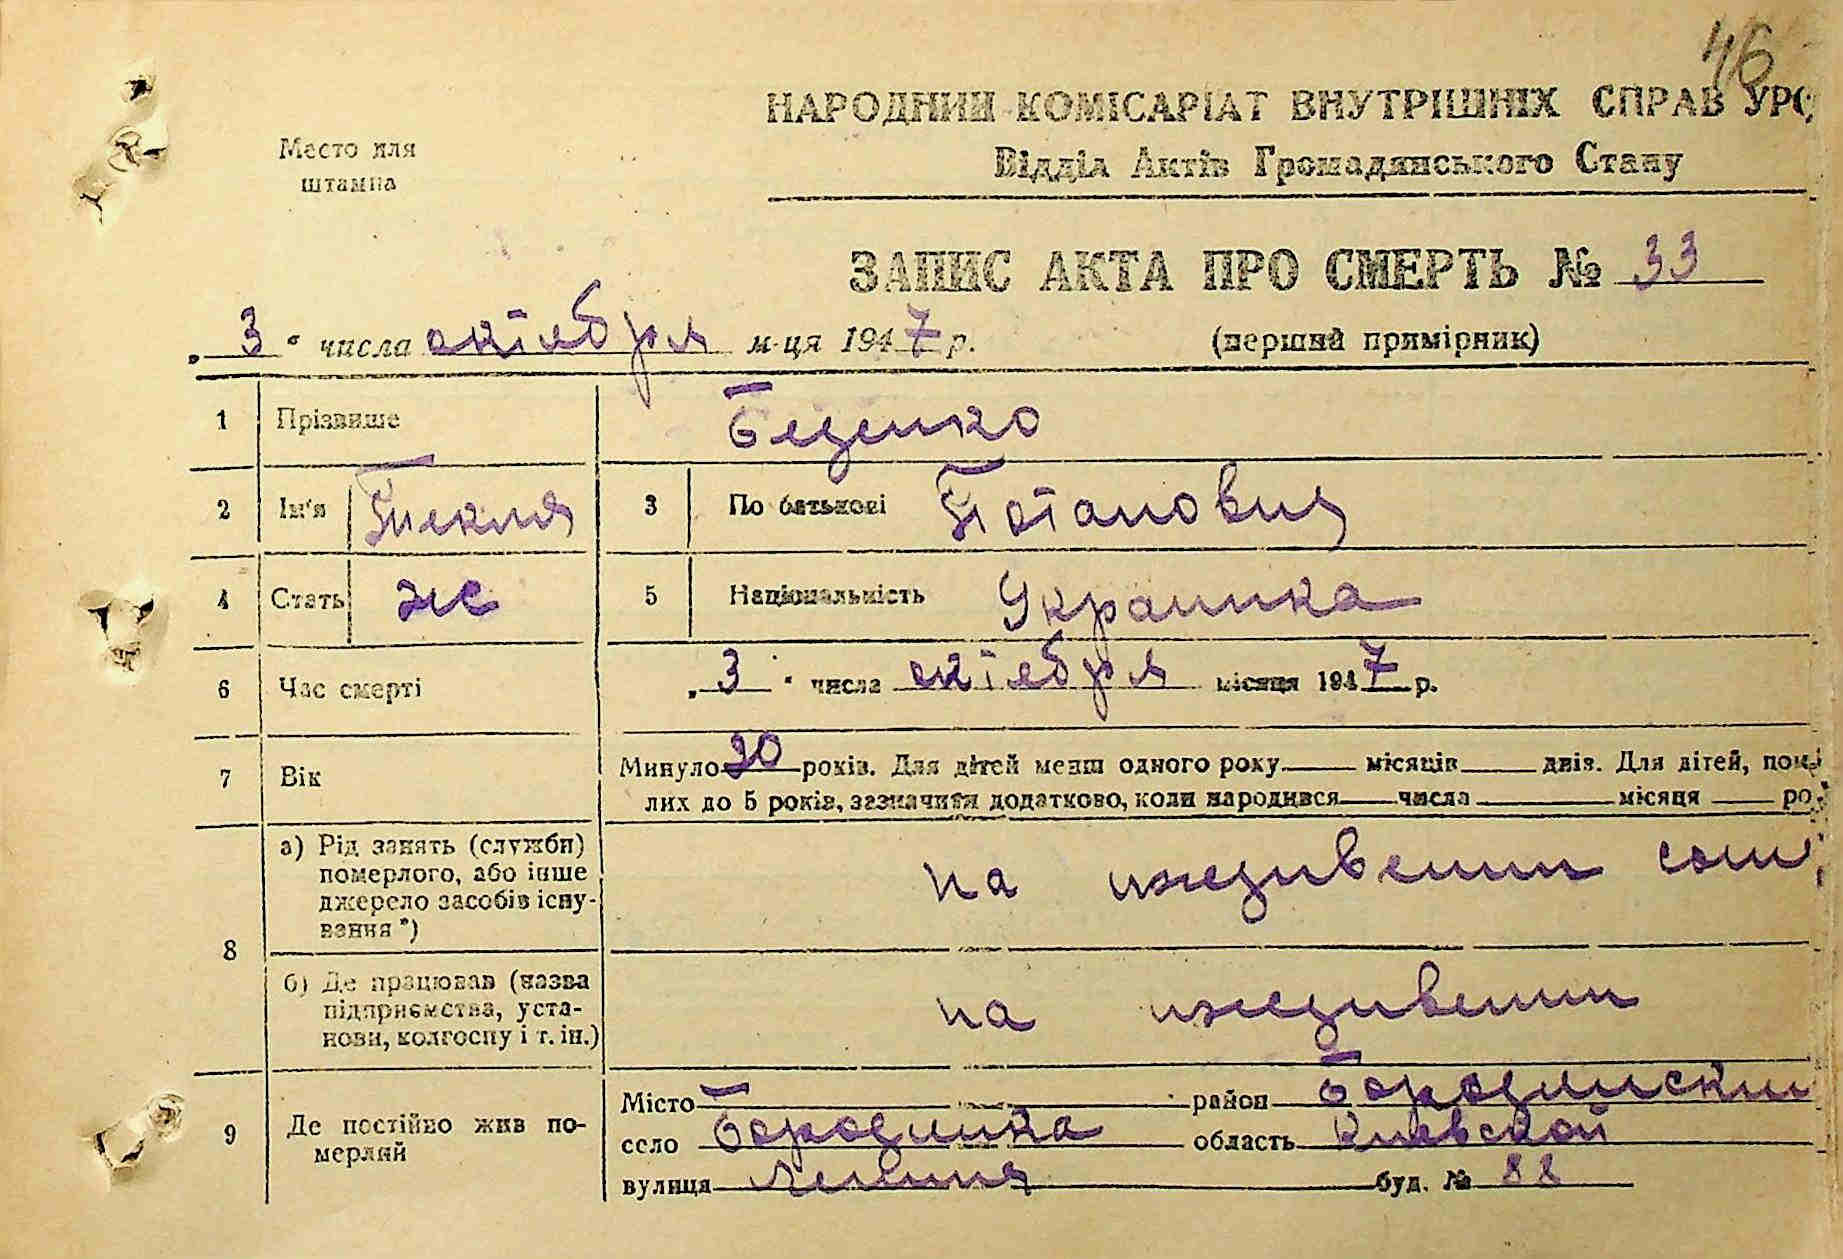 46
НАРОДНИЙ КОМІСАРІАТ ВНУТРІШНІХ СПРАВ УРС
Відділ Актів Громадянського Стану
Место для
штампа
ЗАПИС АКТА ПРО СМЕРТЬ № 33
„3“ числа октября м-ця 1947 р. (перший примірник)
1 Прізвище Беденко
2 Ім'я Текля 3 По батькові Потаповия
4 Стать же 5 Національність Украинка
6 Час смерті „3“ числа октября місяця 1947 р.
7 Вік Минуло 90 років. Для дітей менш одного року місяців днів. Для дітей, пом
лих до 5 років, зазначити додатково, коли народився числа місяця ро
8 а) Рід занять (служби) померлого, або інше джерело засобів існування*) на иждивении
б) Де працював (назва підприємства, установи, колгоспу і т. ін.) на иждивении
9 Де постійно жив померлий
Місто район Бородянский
село Бородянка область Киевской
вулиця Ленина буд. № 88